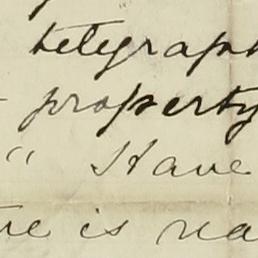 telegraph
property
" Have
is